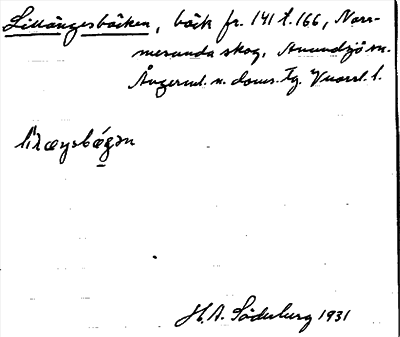 Lillängesbäcken, bäck fr. 141 t. 166, Norr-
meranda skog, Anundsjö sn.
Ångerml. n. doms. tg. Vnorrl. l.
bä̀gən
H. A. Söderberg 1931